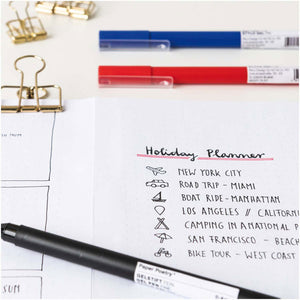 Holiday Planner
NEW YORK CITY
ROAD TRIP - MIAMI
BOAT RIDE - MANHATTAN
LOS ANGELES // CALIFOR
CAMPING IN A NATIONAL P
SAN FRANCISCO - BEACH
BIKE TOUR - WEST COAST
SUN
Paper Poetry
GELSTIFT